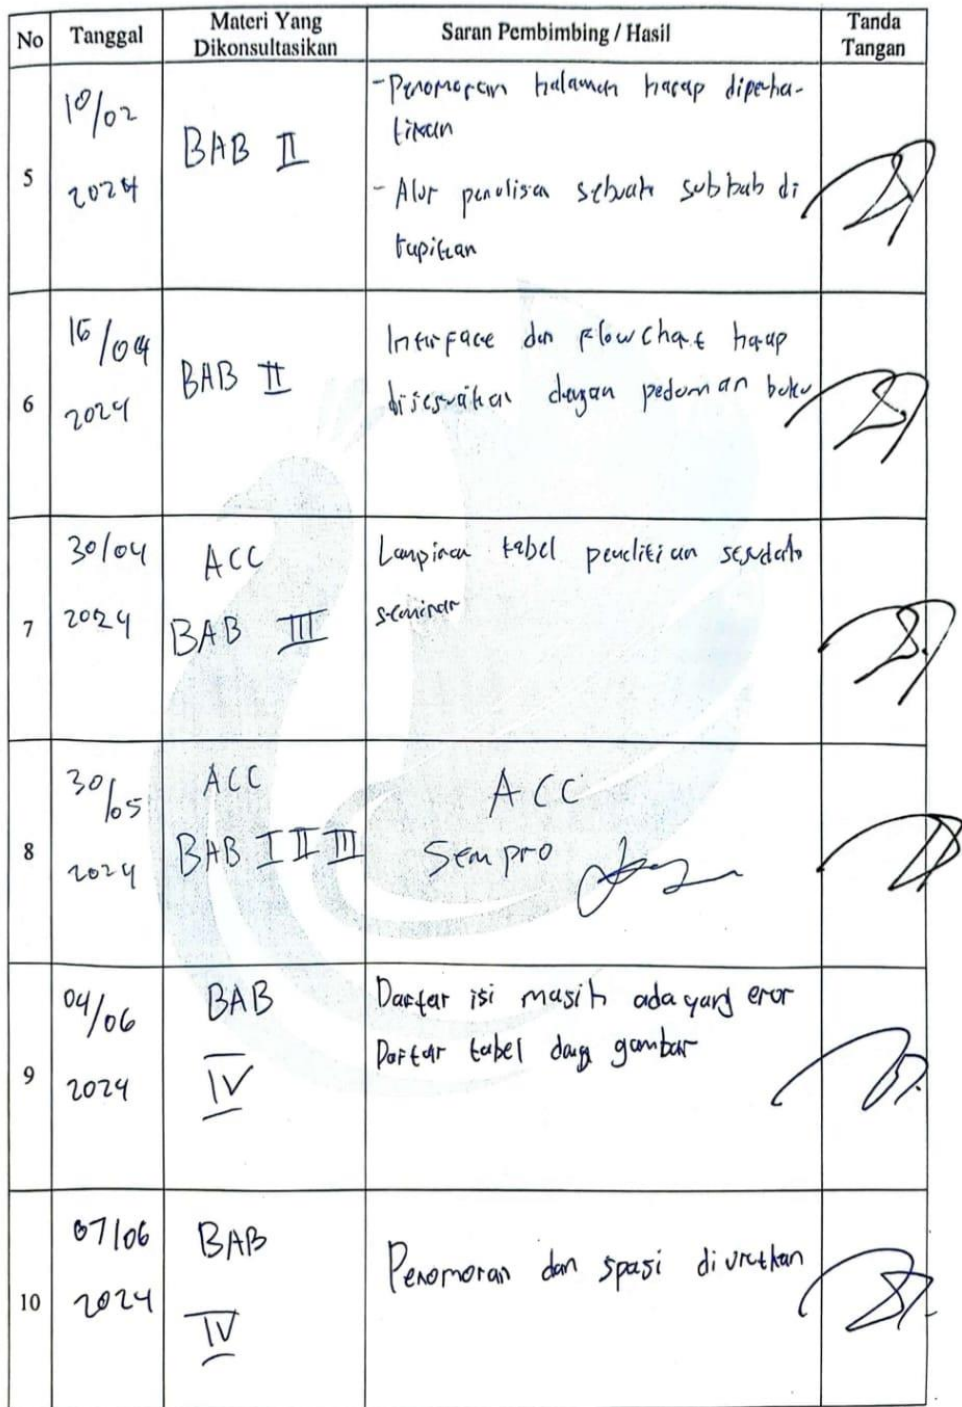 No Tanggal Materi Yang Dikonsultasikan Saran Pembimbing / Hasil Tanda Tangan
5
10/02
2024
BAB II
- Penomoran halaman harap diperha-
tikan
- Alur penulisan sebuah subbab di
rapikan
6
16/04
2024
BAB II
Interface dan flowchart harap
disesuaikan dengan pedoman buku
7
30/04
2024
ACC
BAB III
Lampiran tabel penelitian sesudah
seminar
8
30/05
2024
ACC
BAB I II III
ACC
Sempro
9
04/06
2024
BAB
IV
Daftar isi masih ada yang eror
Daftar tabel dan gambar
10
07/06
2024
BAB
IV
Penomoran dan spasi diurutkan